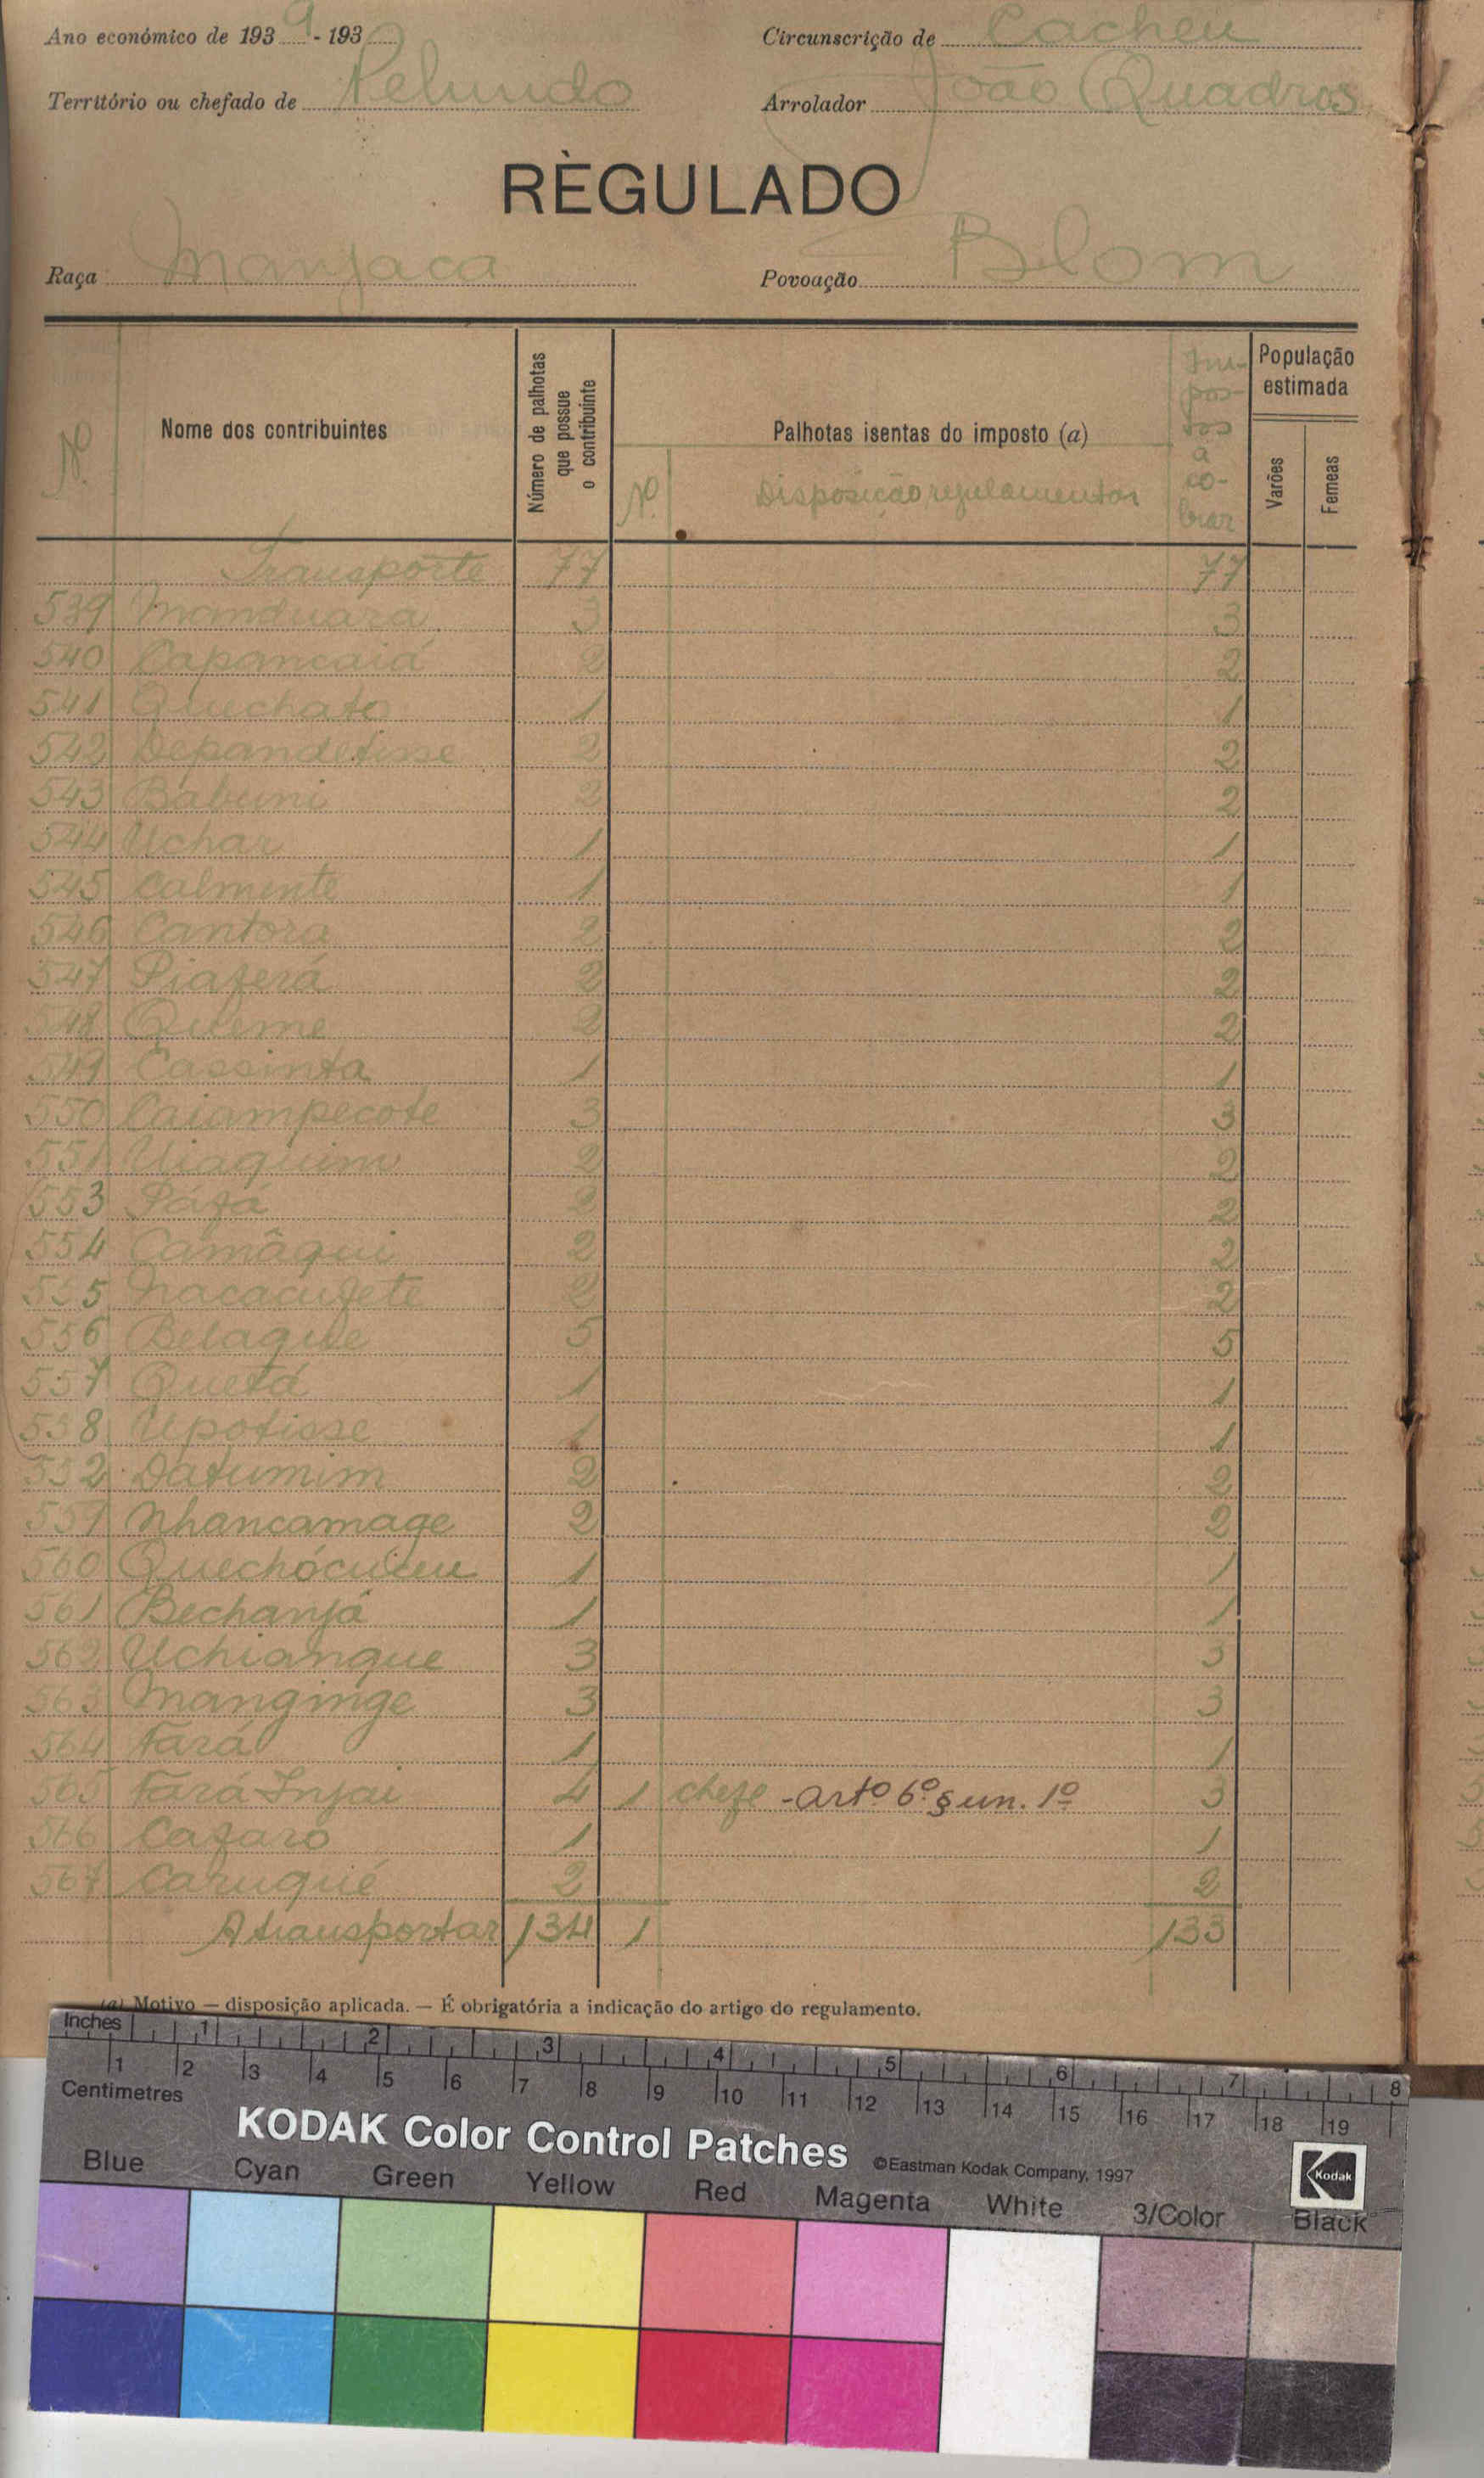 Ano económico de 1939 - 193
Circunscrição de Cacheu
Território ou chefado de Pelundo
Arrolador João Quadros
RÈGULADO
Raça Manjaca
Povoação Blom
Nº
Nome dos contribuintes
Número de palhotas que possue o contribuinte
Palhotas isentas do imposto (a)
Nº
Disposição regulamentar
Im-
pos-
tos
a
co-
brar
População estimada
Varões
Femeas
Transporte 77 77
539 Manduara 3 3
540 Capancaiá 2 2
541 Quechato 1 1
542 Depandetisse 2 2
543 Babuni 2 2
544 Uchar 1 1
545 Calmente 1 1
546 Cantora 2 2
547 Piaferá 2 2
548 Queme 2 2
549 Cassinta 1 1
550 Caiampecote 3 3
551 Uiaquim 2 2
553 Páfá 2 2
554 Camâqui 2 2
555 Nacacufete 2 2
556 Belaque 5 5
557 Quetá 1 1
558 Upotisse 1 1
552 Datumim 2 2
559 Nhancamage 2 2
560 1 1
561 Bechanjá 1 1
562 Uchiangue 3 3
563 Manginge 3 3
564 Fará 1 1
565 Fará Injai 4 1 chefe - artº 6º § un. 1º 3
566 Cafaro 1 1
567 Caruquié 2 2
A transportar 134 1 133
(a) Motivo — disposição aplicada. — É obrigatória a indicação do artigo do regulamento.
Inches 1 2 3 4 5 6 7 8
1 2 3 4 5 6 7 8 9 10 11 12 13 14 15 16 17 18 19
Centimetres
KODAK Color Control Patches ©Eastman Kodak Company, 1997 Kodak
Blue Cyan Green Yellow Red Magenta White 3/Color Black